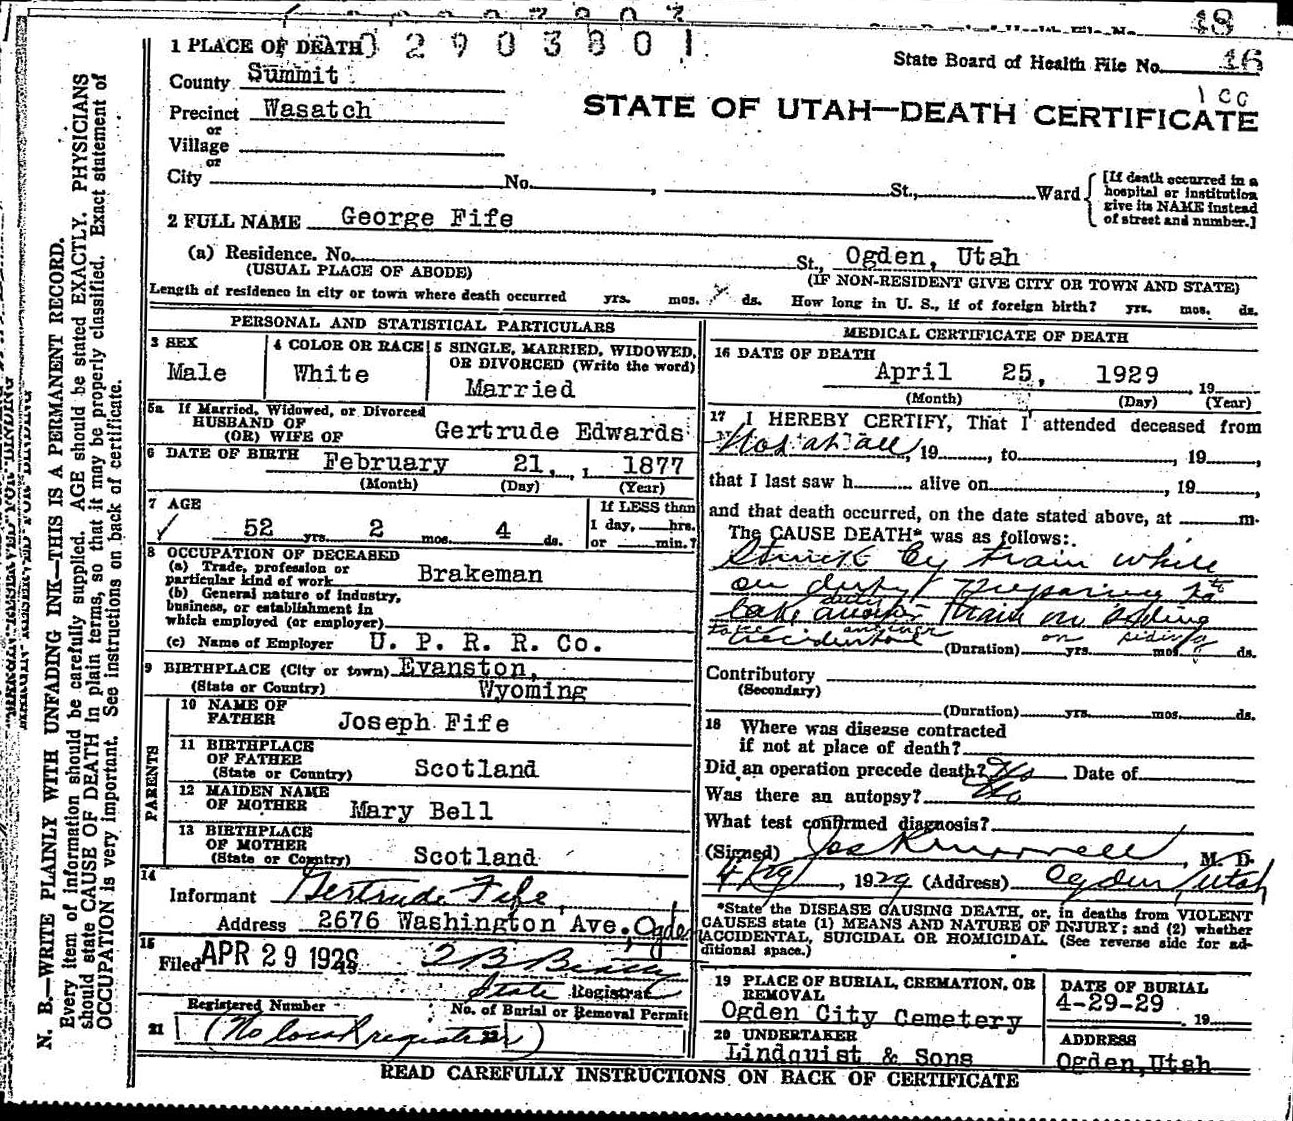 48
1 PLACE OF DEATH
0 2 9 0 3 8 0 1
State Board of Health File No. 46
County Summit
1 CC
Precinct Wasatch
STATE OF UTAH—DEATH CERTIFICATE
or
Village
or
City No. , St., Ward
[If death occurred in a
hospital or institution
give its NAME instead
of street and number.]
2 FULL NAME George Fife
(a) Residence. No. St., Ogden, Utah
(USUAL PLACE OF ABODE) (IF NON-RESIDENT GIVE CITY OR TOWN AND STATE)
Length of residence in city or town where death occurred yrs. mos. ds. How long in U. S., if of foreign birth? yrs. mos. ds.
PERSONAL AND STATISTICAL PARTICULARS
3 SEX
Male
4 COLOR OR RACE
White
5 SINGLE, MARRIED, WIDOWED,
OR DIVORCED (Write the word)
Married
5a If Married, Widowed, or Divorced
HUSBAND OF
(OR) WIFE OF Gertrude Edwards
6 DATE OF BIRTH February 21, , 1877
(Month) (Day) (Year)
7 AGE
52 yrs. 2 mos. 4 ds.
If LESS than
1 day, hrs.
or min.?
8 OCCUPATION OF DECEASED
(a) Trade, profession or
particular kind of work Brakeman
(b) General nature of industry,
business, or establishment in
which employed (or employer)
(c) Name of Employer U. P. R. R. Co.
9 BIRTHPLACE (City or town) Evanston,
(State or Country) Wyoming
PARENTS
10 NAME OF
FATHER Joseph Fife
11 BIRTHPLACE
OF FATHER
(State or Country) Scotland
12 MAIDEN NAME
OF MOTHER Mary Bell
13 BIRTHPLACE
OF MOTHER
(State or Country) Scotland
14
Informant Gertrude Fife,
Address 2676 Washington Ave., Ogden
15
Filed APR 29 1929
State Registrar
Registered Number No. of Burial or Removal Permit
21 (No local registrar) 22
MEDICAL CERTIFICATE OF DEATH
16 DATE OF DEATH
April 25, 1929 , 19
(Month) (Day) (Year)
17 I HEREBY CERTIFY, That I attended deceased from
Not at all, 19 , to , 19 ,
that I last saw h alive on , 19 ,
and that death occurred, on the date stated above, at m.
The CAUSE DEATH* was as follows:
Struck by train while
on duty preparing to
take another train on siding
accidental
(Duration) yrs. mos. ds.
Contributory
(Secondary)
(Duration) yrs. mos. ds.
18 Where was disease contracted
if not at place of death?
Did an operation precede death? No Date of
Was there an autopsy? No
What test confirmed diagnosis?
(Signed) , M. D.
4/29, 1929 (Address) Ogden, Utah
*State the DISEASE CAUSING DEATH, or, in deaths from VIOLENT
CAUSES state (1) MEANS AND NATURE OF INJURY; and (2) whether
ACCIDENTAL, SUICIDAL OR HOMICIDAL. (See reverse side for ad-
ditional space.)
19 PLACE OF BURIAL, CREMATION, OR
REMOVAL
Ogden City Cemetery
DATE OF BURIAL
4-29-29
, 19
20 UNDERTAKER
Lindquist & Sons
ADDRESS
Ogden,Utah
READ CAREFULLY INSTRUCTIONS ON BACK OF CERTIFICATE
N. B.—WRITE PLAINLY WITH UNFADING INK—THIS IS A PERMANENT RECORD.
Every item of information should be carefully supplied. AGE should be stated EXACTLY. PHYSICIANS
should state CAUSE OF DEATH in plain terms, so that it may be properly classified. Exact statement of
OCCUPATION is very important. See instructions on back of certificate.